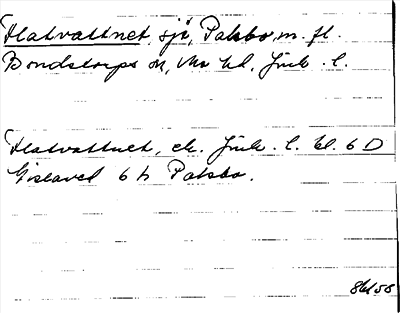 Flatvattnet, sjö, Palsbo, m. fl.
Bondstorps sn, Mo hd. Jönk. l.
Flatvattnet, ek. Jönk. l. bl. 6 D
Gislaved 6 h Palsbo.